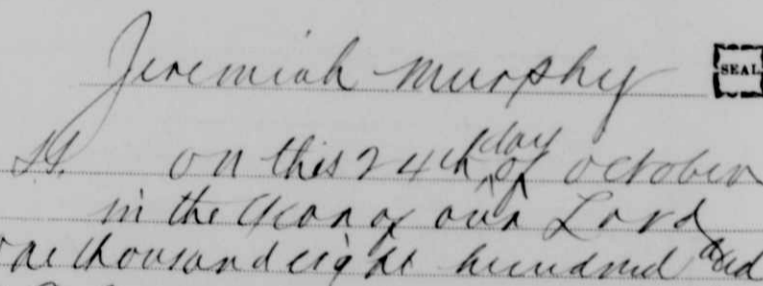 Jeremiah Murphy SEAL
SS. on this 24th day of October
in the year of our Lord
one thousand eight hundred and